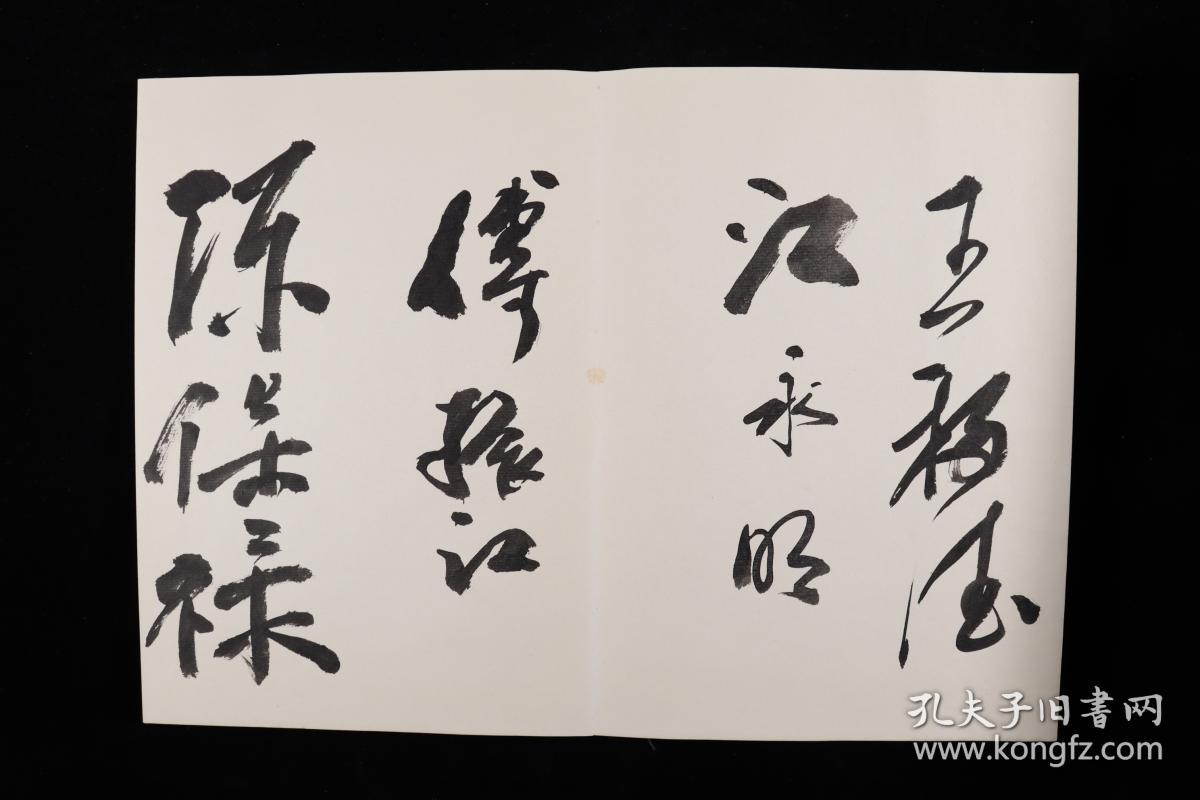 王福德
江永明
傅振江
陈保禄
孔夫子旧書网
www.kongfz.com